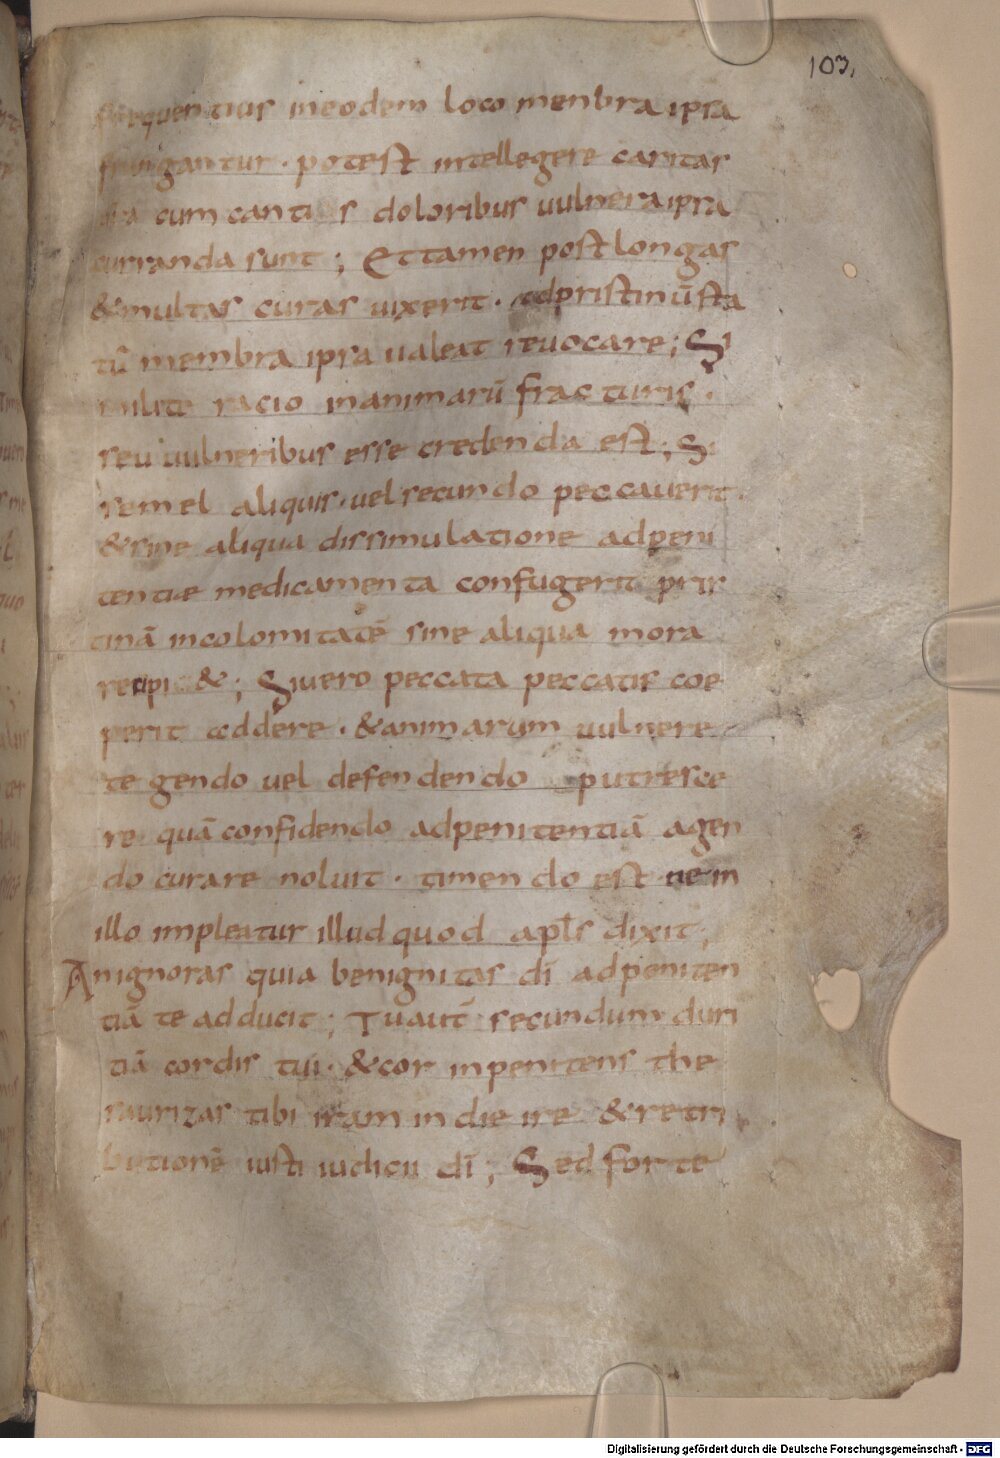 103.
frequentius in eodem loco menbra ipsa
frangantur · potest intellegere caritas
cum canti s doloribus uulnera ipsa
curranda sunt ; Et tamen post longas
& multas curas uixerit · ad pristinū sta
tū membra ipsa ualeat reuocare ; Si
milite racio in animarū fracturis ·
seu uulneribus esse credenda est ; Si
semel aliquis · uel secundo peccauerit ·
& sine aliqua dissimulatione ad peni
tentiæ medicamenta confugerit pris
tinā incolomitatē sine aliqua mora
recipi & ; Si uero peccata peccatis coe
perit addere · & animarum uulnere
tegendo uel defendendo putresce
re quā confidendo ad penitentiā agen
do curare noluit · timendo est ne in
illo impleatur illud quod apłs dixit ;
An ignoras quia benignitas dī ad peniten
tiā te adducit ; Tu aūt secundum duri
tiā cordis tui · & cor inpenitens the
saurizas tibi iram in die ire & retri
butionē iusti iudicii dī ; Sed forte
Digitalisierung gefördert durch die Deutsche Forschungsgemeinschaft - DFG